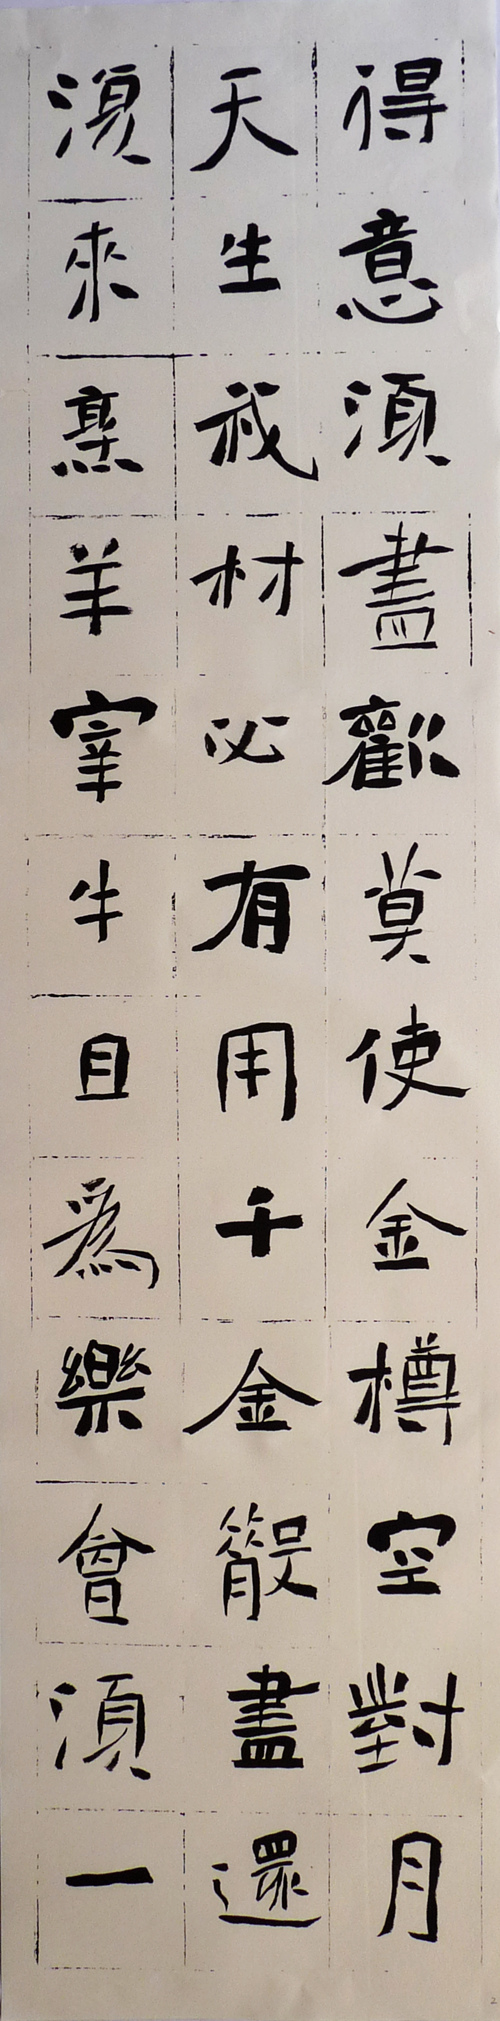 得意須盡歡莫使金樽空對月
天生我材必有用千金散盡還
復來烹羊宰牛且爲樂會須一